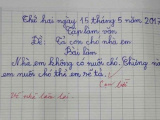 Thứ hai ngày 15 tháng 5 năm 2017
Tập làm văn
Đề: Tả con chó nhà em
Bài làm
Nhà em không có nuôi chó. Chừng nào
em nuôi chó thì em sẽ tả.
Về nhà làm lại